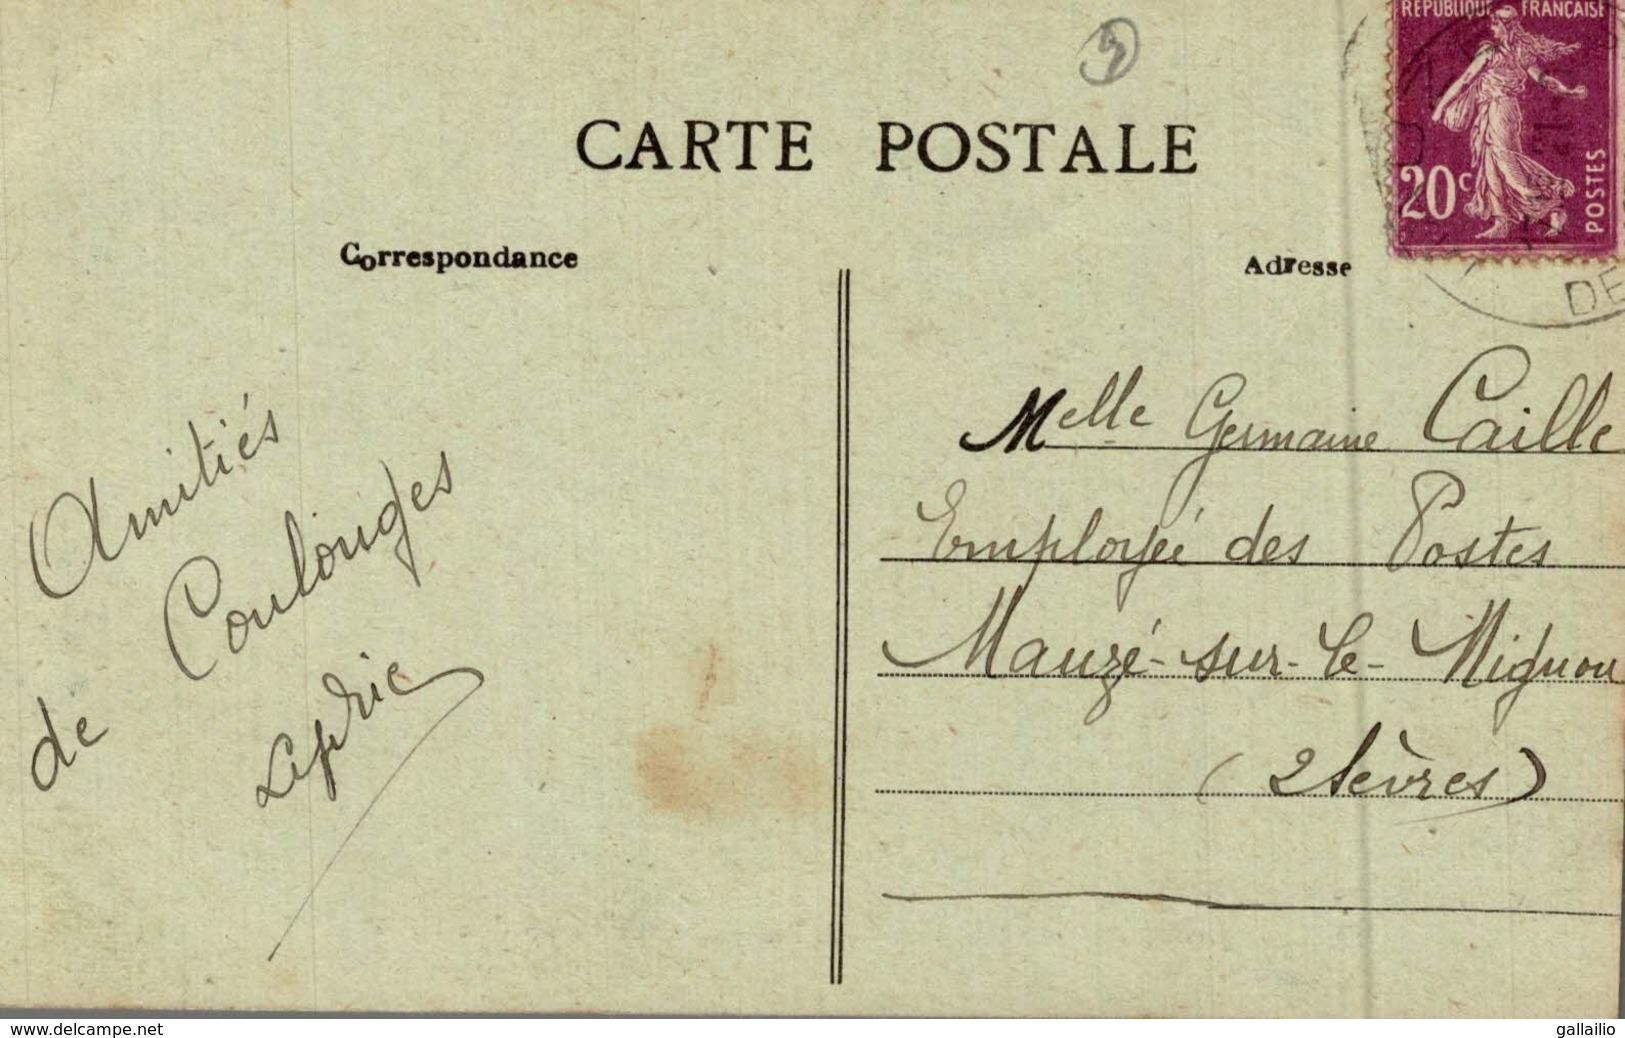 RÉPUBLIQUE FRANÇAISE
20c
POSTES
DE
CARTE POSTALE
Correspondance
Adresse
Amitiés
de Coulonges
Melle Germaine Caille
Employée des Postes
Mauzé-sur-le-Mignon
(2 Sèvres)
www.delcampe.net
gallailio